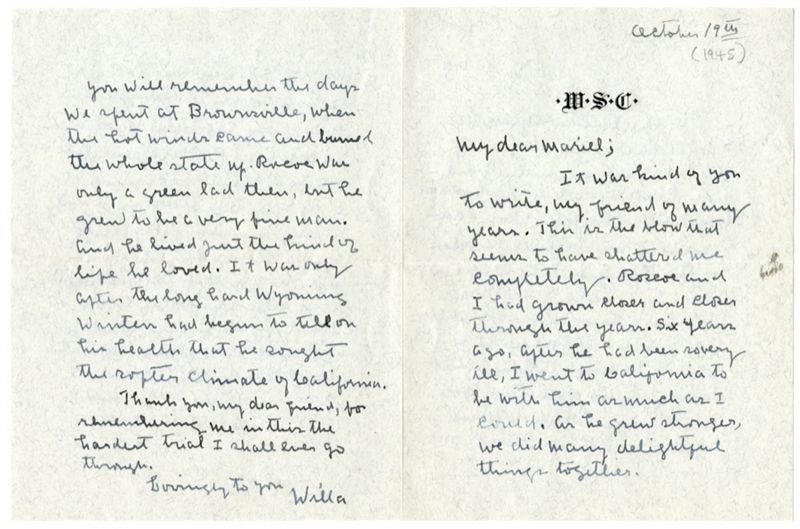 October 19th
(1945)
·W·S·C·
My dear Mariel;
It was kind of you
to write, my friend of many
years. This is the blow that
seems to have shattered me
completely. Roscoe and
I had grown closer and closer
through the years. Six years
ago, after he had been so very
ill, I went to California to
be with him as much as I
could. As he grew stronger,
we did many delightful
things together.
You will remember the days
we spent at Brownville, when
the hot winds came and burned
the whole state up. Roscoe was
only a green lad then, but he
grew to be a very fine man.
And he lived just the kind of
life he loved. It was only
after the long hard Wyoming
Winters had begun to tell on
his health that he sought
the softer climate of California.
Thank you, my dear friend, for
remembering me in this the
hardest trial I shall ever go
through.
Lovingly to you
Willa